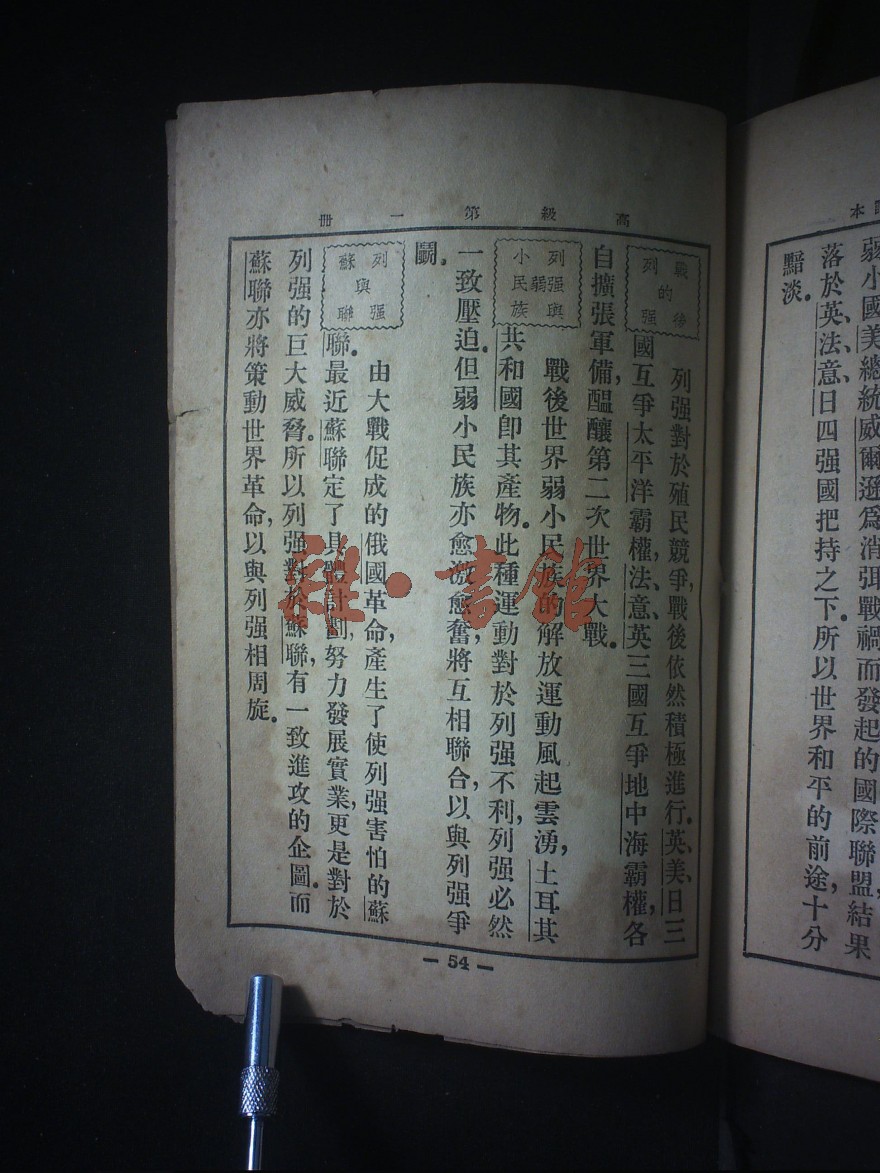 本
弱小國美總統威爾遜爲消弭戰禍而發起的國際聯盟，結果
落於英、法、意、日四强國把持之下。所以世界和平的前途，十分
黯淡。
高級第一冊
戰後
的
列强
列强對於殖民競爭，戰後依然積極進行。英、美、日三
國互爭太平洋霸權，法、意、英三國互爭地中海霸權，各
自擴張軍備，醞釀第二次世界大戰。
列强與
弱
小民族
戰後世界弱小民族的解放運動風起雲湧，土耳其
共和國卽其產物。此種運動對於列强不利，列强必然
一致壓迫。但弱小民族亦愈激愈奮，將互相聯合，以與列强爭
鬭。
列强
與
蘇聯
由大戰促成的俄國革命，產生了使列强害怕的蘇
聯。最近蘇聯定了具體計劃，努力發展實業，更是對於
列强的巨大威脅。所以列强對於蘇聯，有一致進攻的企圖。而
蘇聯亦將策動世界革命，以與列强相周旋。
— 54 —
雜·書館